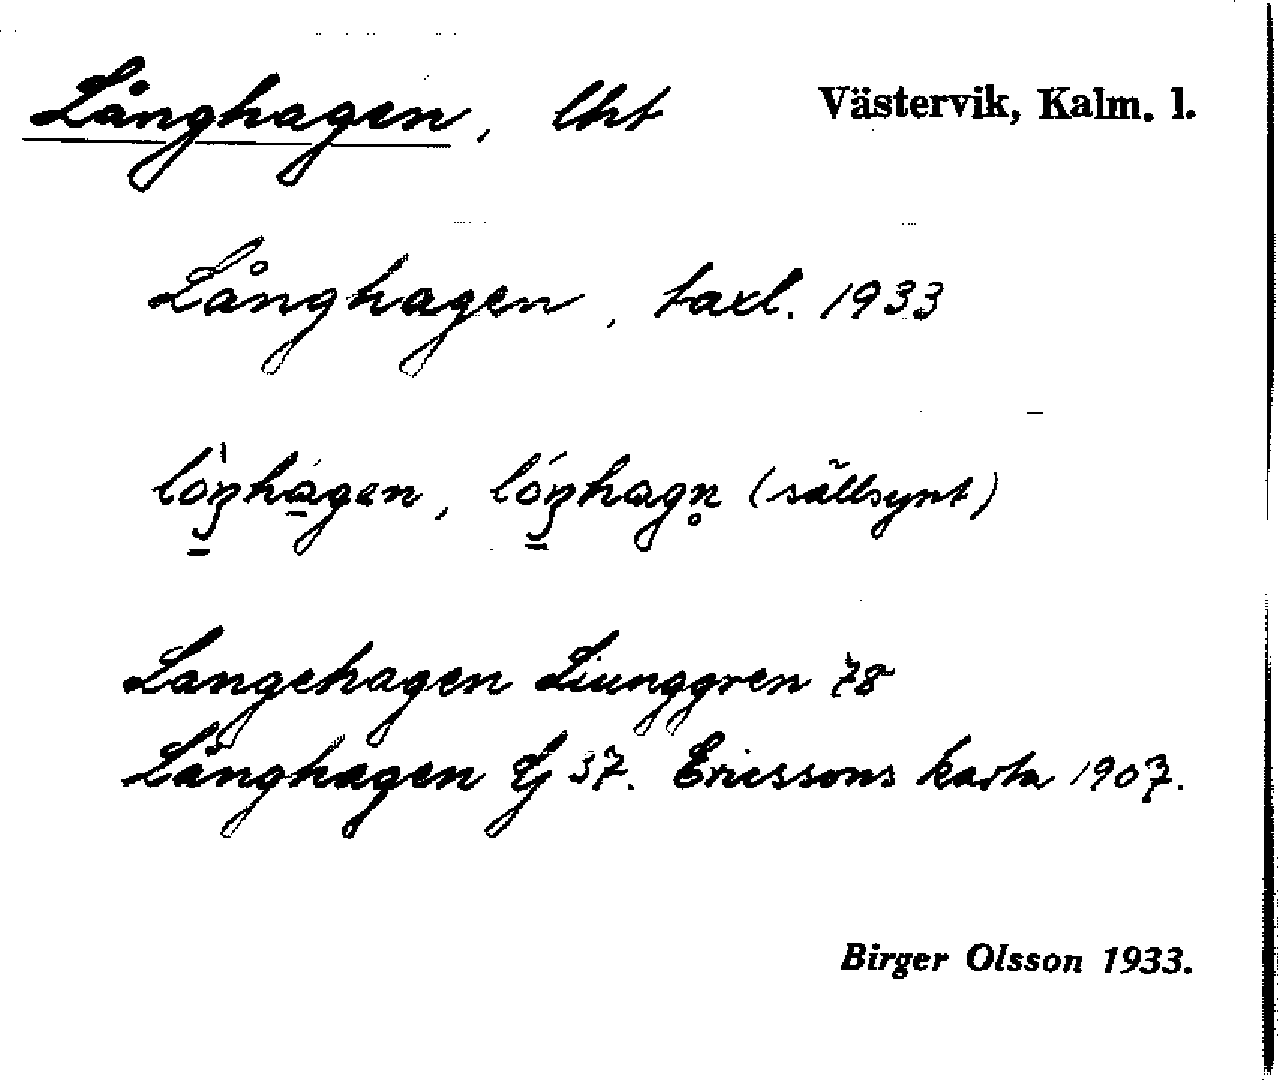 Långhagen, lht Västervik, Kalm. l.
Långhagen, taxl. 1933
(sällsynt)
Langehagen Liunggren 78
Långhagen Ej 37. Ericssons karta 1907.
Birger Olsson 1933.